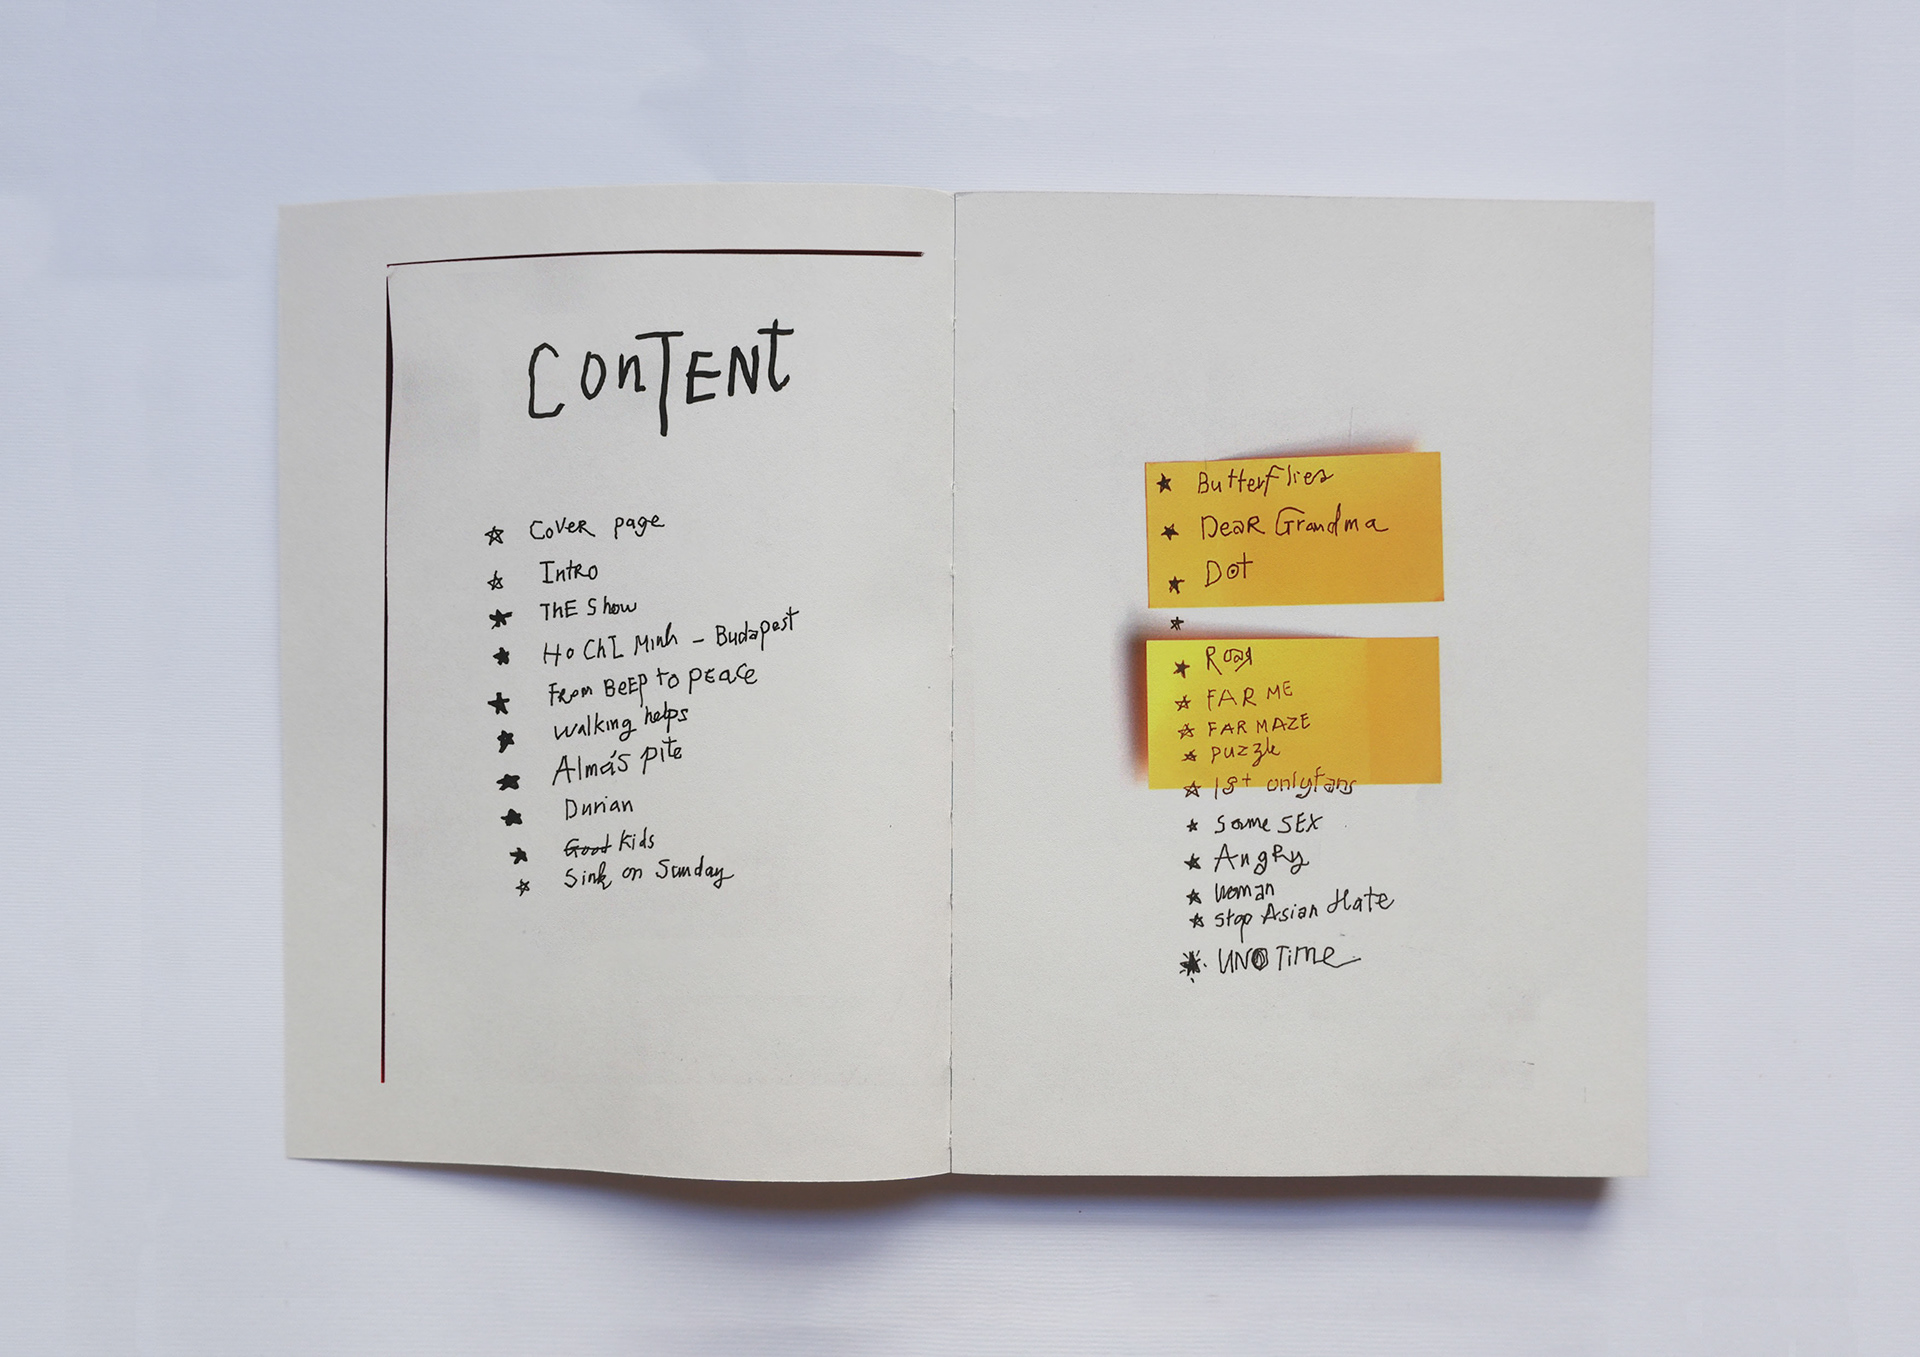 ConTENt
Cover page
Intro
ThE Show
Ho ChI Minh - Budapest
From BEEP to PEace
Walking helps
Almás pite
Durian
Good Kids
Sink on Sunday
Butterflies
Dear Grandma
Dot
Road
FAR ME
FAR MAZE
Puzzle
18+ onlyfans
Same SEX
Angry
Woman
Stop Asian Hate
UNO Time